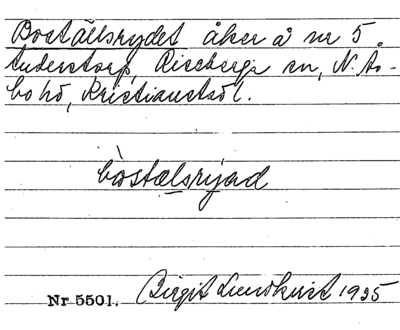 Boställsrydet åker å nr 5
Luderstorp, Riseberga sn, N. Ås-
bo hd, Kristianstads l.
bòstælsryəd
Nr 5501. Birgit Lundkvist 1935